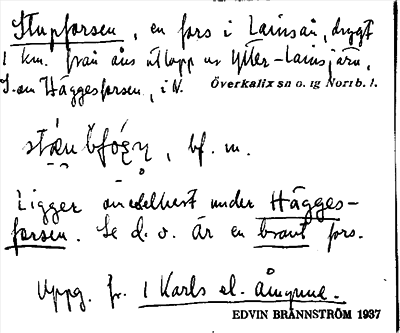 Stupforsen, en fors i Lainsån, drygt
1 km. från åns utlopp ur Ytter-Lainsjärv,
S. om Häggesforsen, i N. Överkalix sn o. tg Norrb. l.
bf. m.
Ligger omedelbart under Hägges-
forsen. Se d. o. Är en brant fors.
Uppg. fr. 1 Karls el.
EDVIN BRÄNNSTRÖM 1937